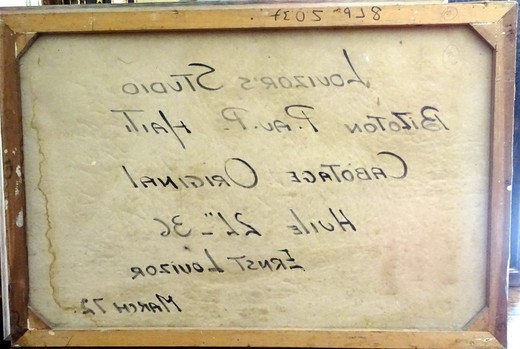 LOUIZOR'S STUDIO
BIZOTON P.AU.P. HAITI
CABOTAGE ORIGINAL
HUILE 24" - 36
ERNST LOUIZOR
MARCH 72